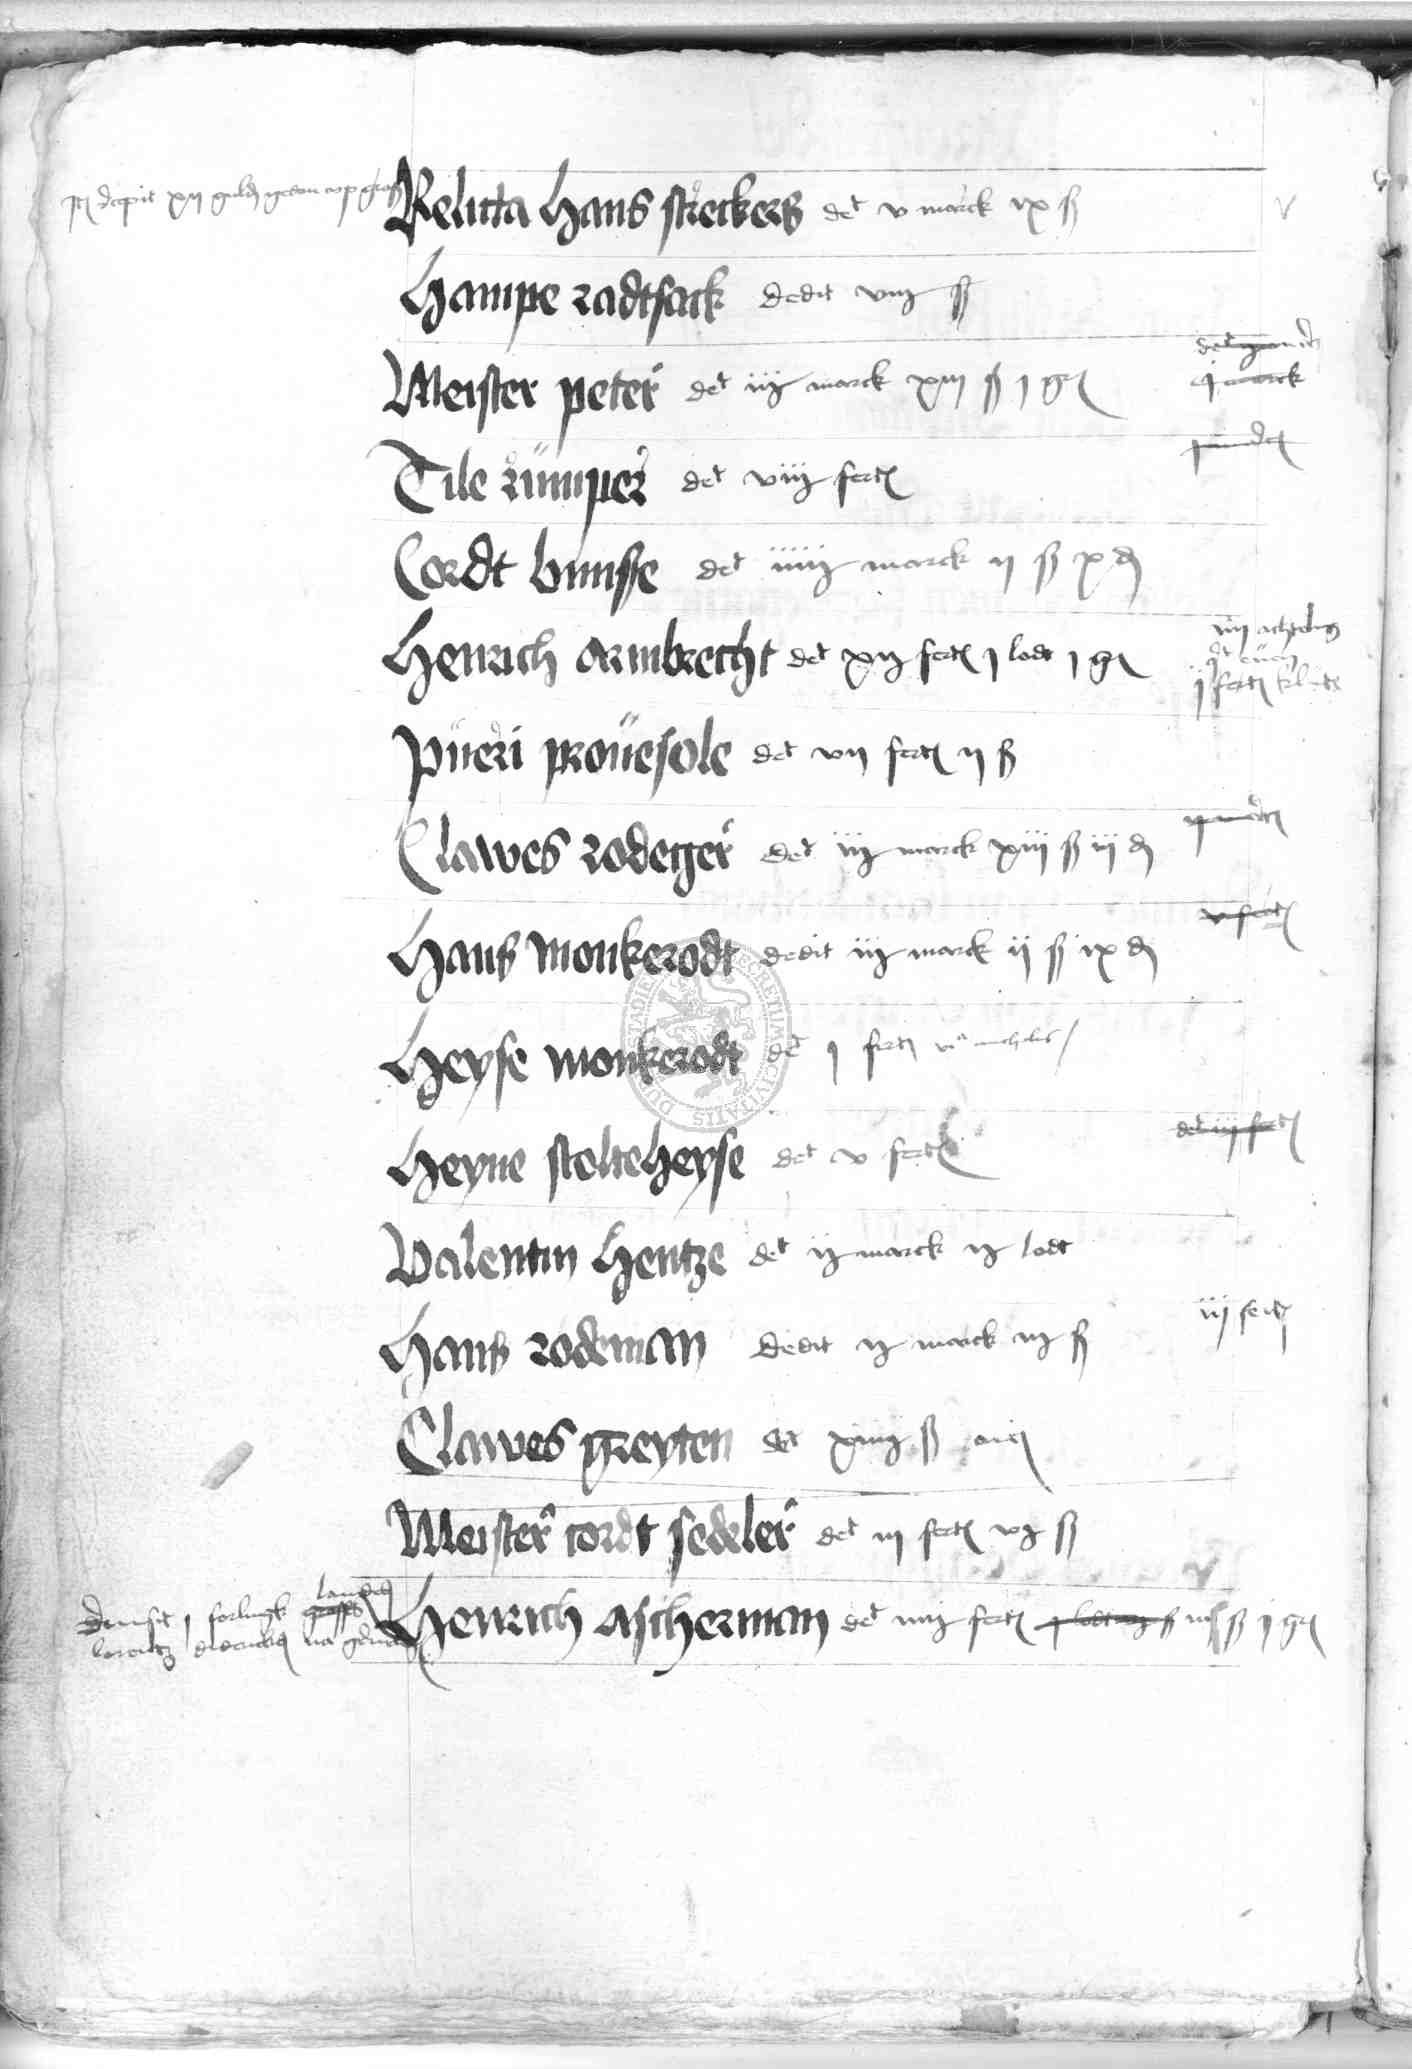 Relicta Hans Streckers det v marck ix ß
Hampe radtsack dedit viij ß
Meister peter det iij marck xiij ß j gr
j marck
Tile rümper det viij fert
Cordt bunsse det iiiij marck ij ß x d
iiij
Henrich Armbrecht det xij fert j lodt j gr
ij fert
Püeri proüesole det vij fert ij ß
Clawes rodeger det iij marck xiij ß iij d
v fert
Hans monkerodt dedit iij marck ij ß ix d
Heyse monkerodt det j fert
det iij fert
Heyne stolteheyse det v fert
Valentin Hentze det ij marck ij lodt
iij fert
Hans rodeman dedit ij marck iij ß
Clawes greyten det xiiij ß
Meister cordt sedeler det iij fert vj ß
Henrich ascherman det iiij fert ß j gr
SECRETUM CIVITATIS